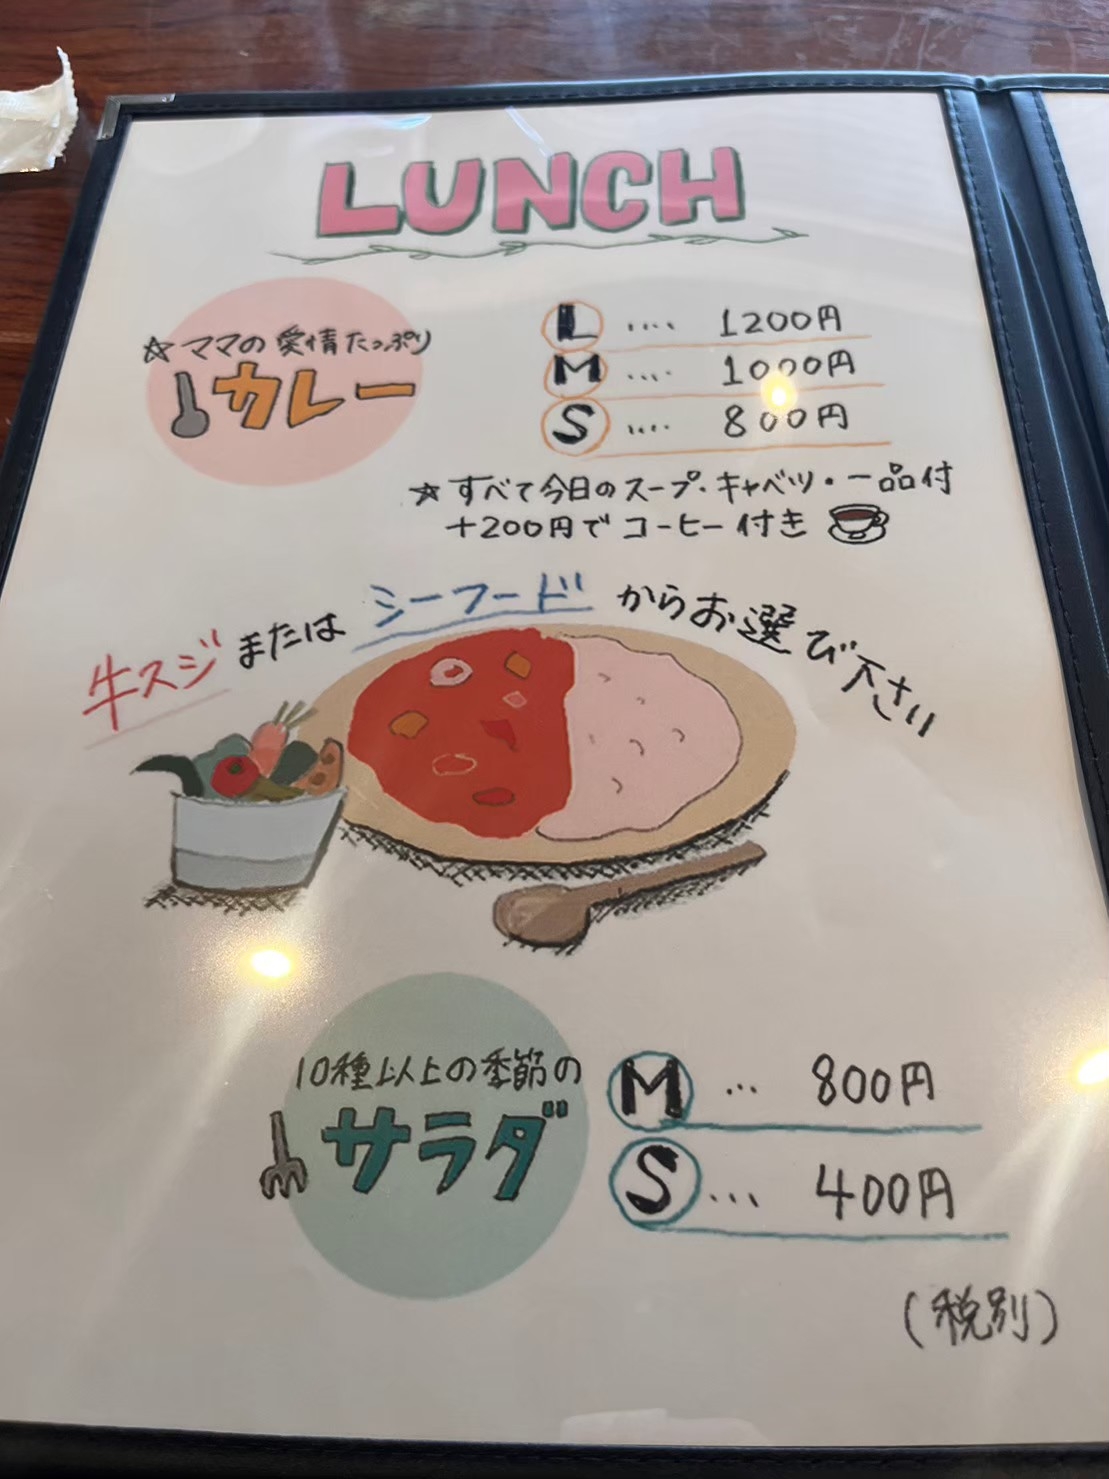 LUNCH
☆ママの愛情たっぷり
カレー
L .... 1200円
M .... 1000円
S .... 800円
☆すべて今日のスープ・キャベツ・一品付
+200円でコーヒー付き
牛スジまたはシーフードからお選び下さい
10種以上の季節の
サラダ
M ... 800円
S ... 400円
(税別)